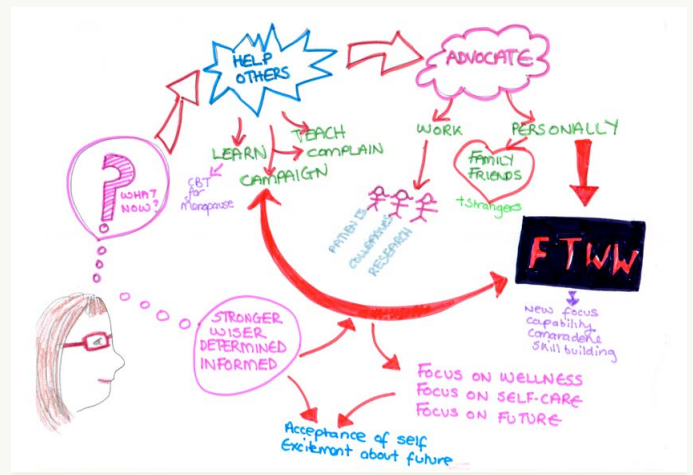 HELP
OTHERS
ADVOCATE
LEARN
TEACH
COMPLAIN
CAMPAIGN
CBT
for
Menopause
WORK
PERSONALLY
FAMILY
FRIENDS
+ Strangers
PATIENTS
COLLEAGUES
RESEARCH
?
WHAT
NOW?
FTWW
New focus
capability
camaraderie
Skill building
STRONGER
WISER
DETERMINED
INFORMED
FOCUS ON WELLNESS
FOCUS ON SELF-CARE
FOCUS ON FUTURE
Acceptance of self
Excitement about future